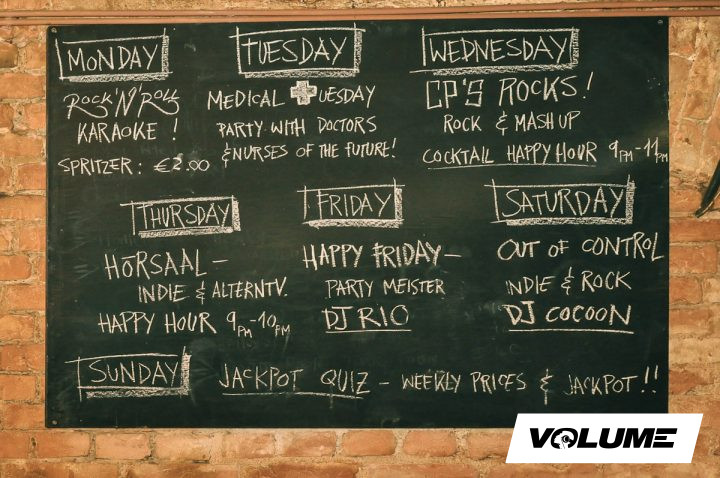 MONDAY
ROCK'N'ROLL
KARAOKE !
SPRITZER: €2.00
TUESDAY
MEDICAL TUESDAY
PARTY WITH DOCTORS
& NURSES OF THE FUTURE!
WEDNESDAY
CP'S ROCKS!
ROCK & MASH UP
COCKTAIL HAPPY HOUR 9PM-11PM
THURSDAY
HÖRSAAL –
INDIE & ALTERNTV.
HAPPY HOUR 9PM-10PM
FRIDAY
HAPPY FRIDAY –
PARTY MEISTER
DJ RIO
SATURDAY
OUT OF CONTROL
INDIE & ROCK
DJ COCOON
SUNDAY
JACKPOT QUIZ – WEEKLY PRICES & JACKPOT!!
VOLUME